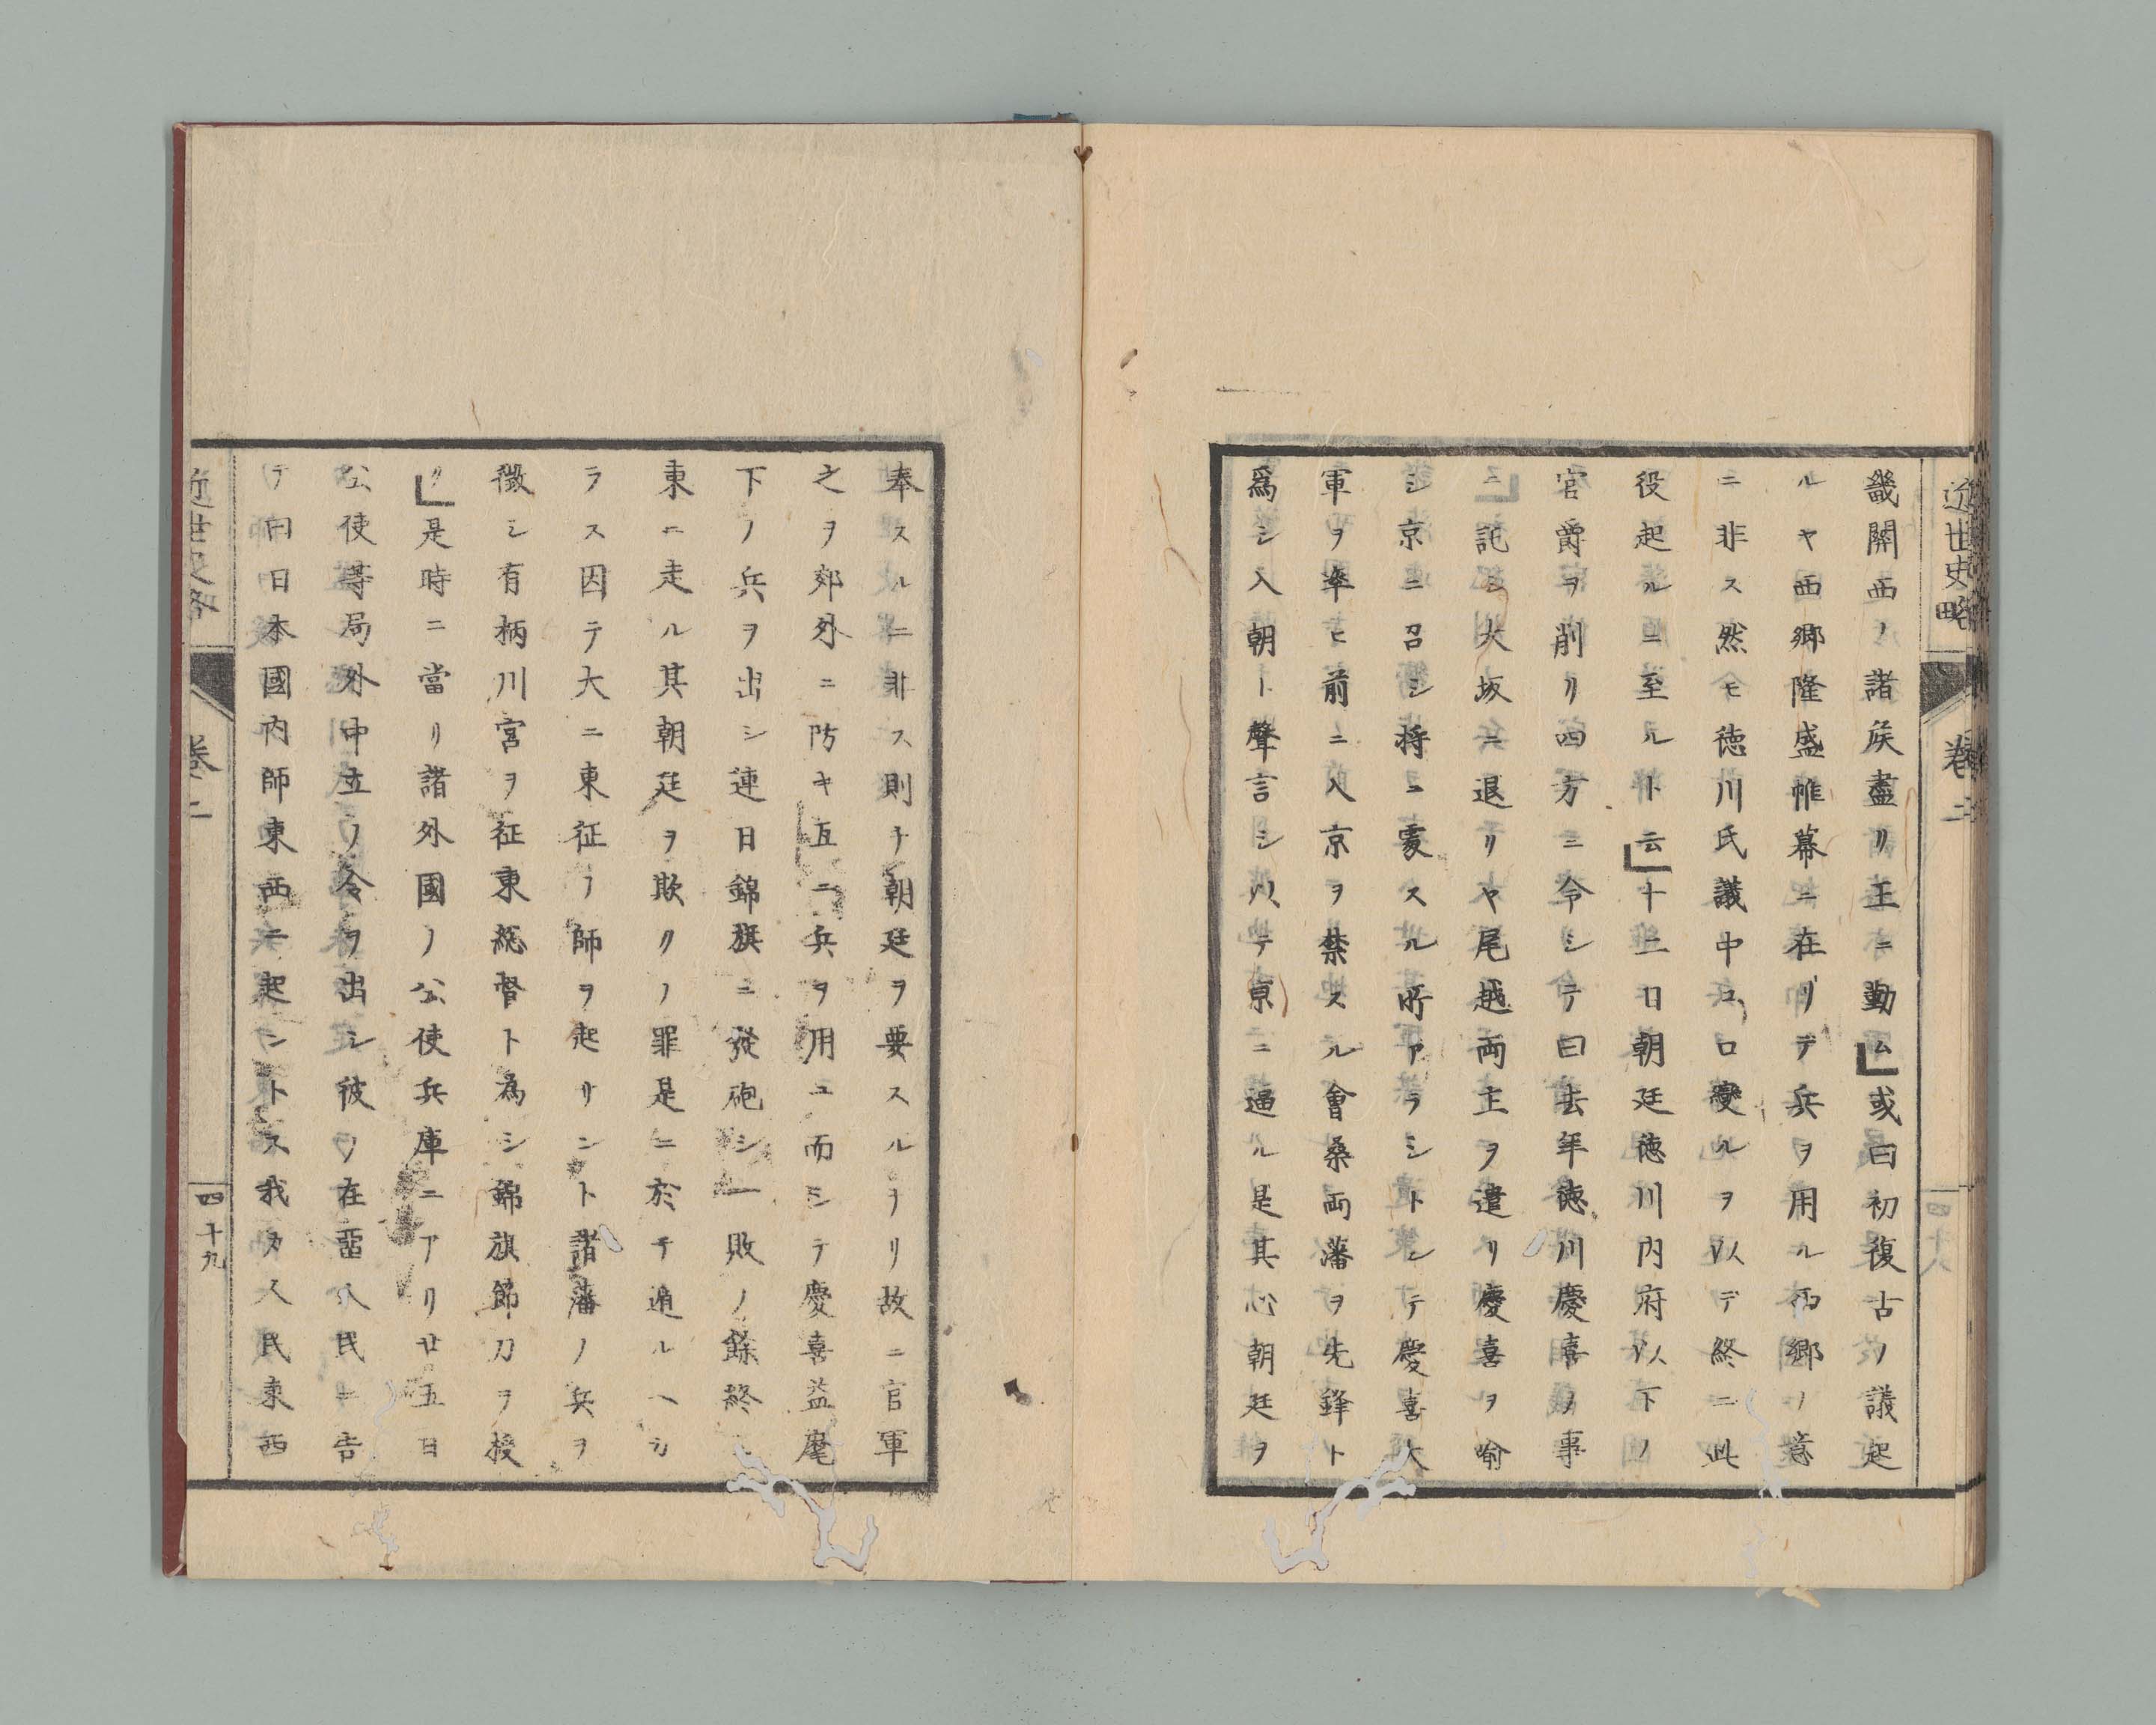 近世史略
卷二
畿關西ノ諸矦盡リ王ニ動ム」或曰初復古ノ議起
ルヤ西郷隆盛帷幕ニ在リテ兵ヲ用ル西郷ノ意
ニ非ス然モ徳川氏議中コロ變ルヲ以テ終ニ此
役起ルニ至ルト云」十二日朝廷徳川内府以下ノ
官爵ヲ削リ四方ニ令シテ曰去年徳川慶喜ノ事
ニ託シ大坂ニ退リヤ尾越両主ヲ遣リ慶喜ヲ喻
シ京ニ召シ将ニ處スル所アラントシテ慶喜大
軍ヲ率ヒ前ニ入京ヲ禁スル會桑両藩ヲ先鋒ト
爲シ入朝ト聲言シ以テ京ニ逼ル是其心朝廷ヲ
奉スルニ非ス則チ朝廷ヲ要スルヲリ故ニ官軍
之ヲ郊外ニ防キ互ニ兵ヲ用ユ而シテ慶喜益麾
下ノ兵ヲ出シ連日錦旗ニ發砲シ一敗ノ餘終ニ
東ニ走ル其朝廷ヲ欺クノ罪是ニ於テ逭ルヘカ
ラス因テ大ニ東征ノ師ヲ起サント諸藩ノ兵ヲ
徴シ有柄川宮ヲ征東總督ト為シ錦旗節刀ヲ授
ク」是時ニ當リ諸外國ノ公使兵庫ニアリ廿五日
公使等局外中立ノ令ヲ出シ彼ノ在畱人民ニ告
テ曰日本國内師東西ニ起ントス我カ人民東西
近世史略
卷二
四十九